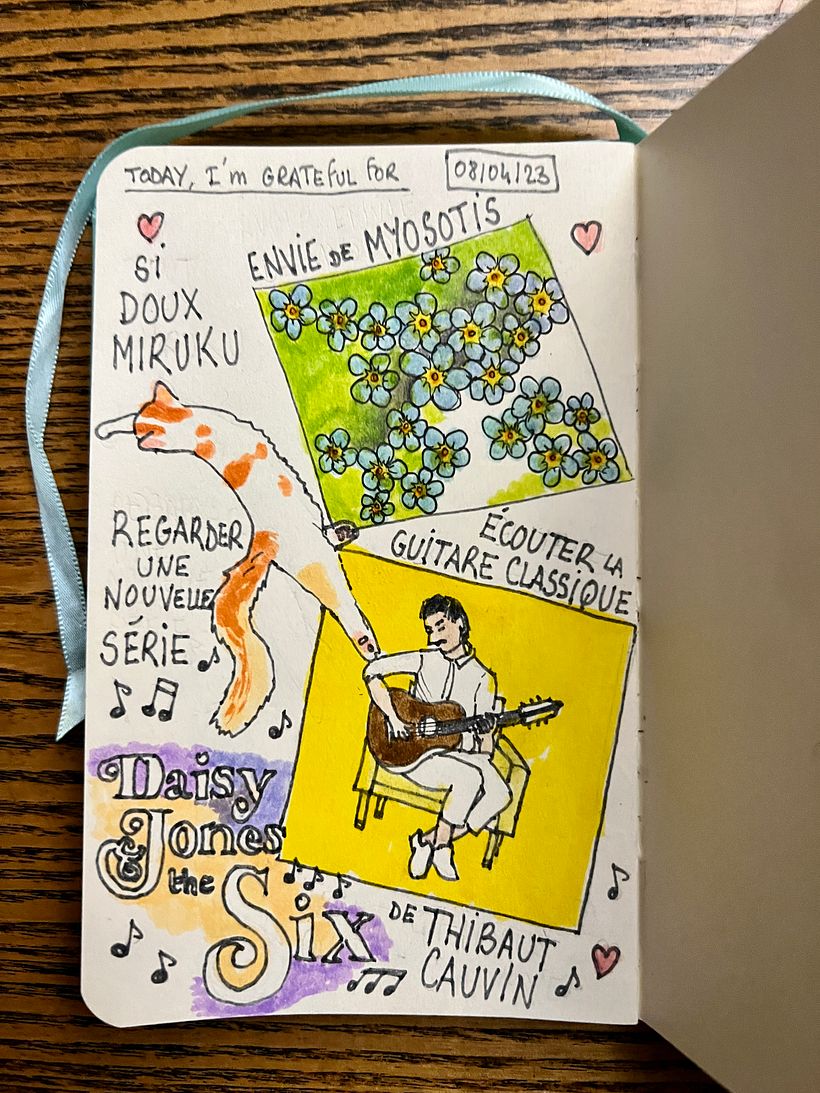 TODAY, I'm GRATEFUL FOR
08/04/23
Si
DOUX
MIRUKU
ENVIE DE MYOSOTIS
REGARDER
UNE
NOUVELLE
SÉRIE
Daisy
Jones
& the
Six
ÉCOUTER LA
GUITARE CLASSIQUE
DE THIBAUT
CAUVIN